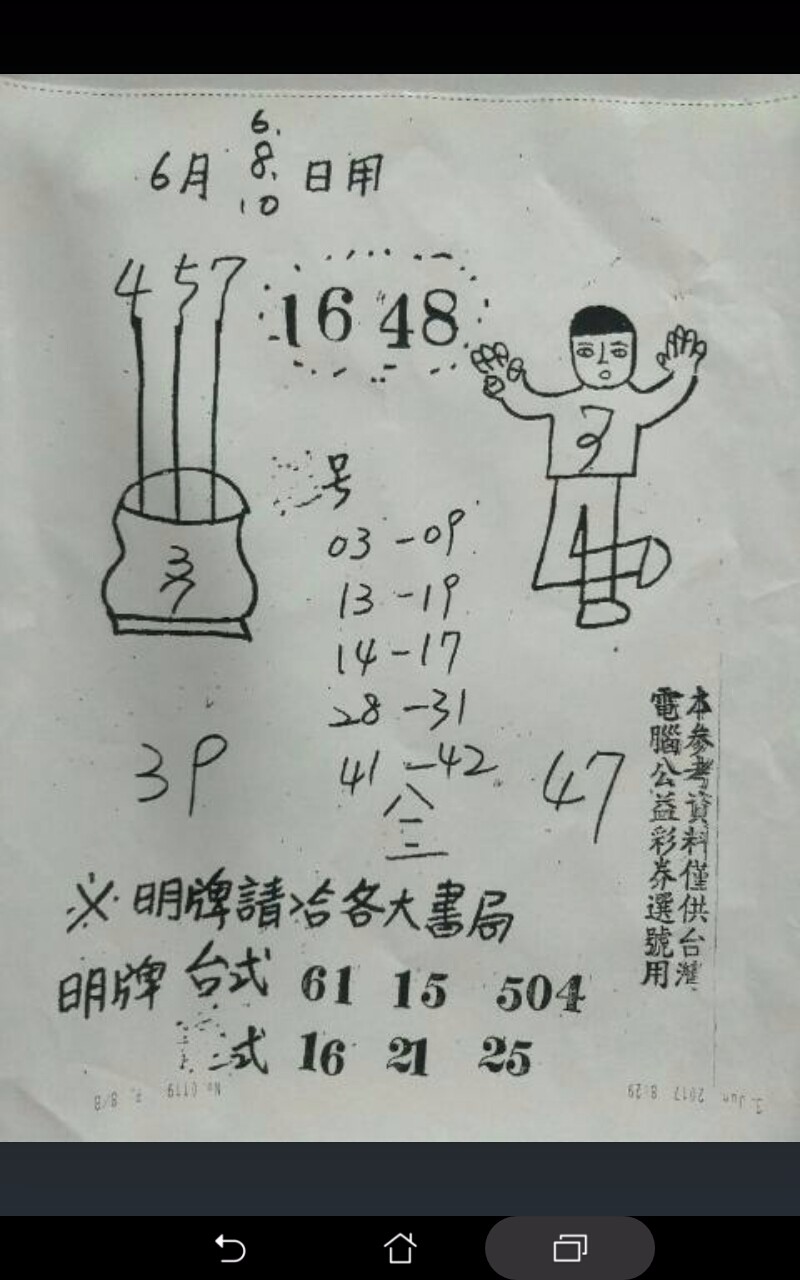 6.
6月 8. 日用
10
457
16 48
号
03-09
13-19
14-17
28-31
41-42
39
47
本參考資料僅供台灣
電腦公益彩券選號用
※明牌請洽各大書局
明牌 台式 61 15 504
二式 16 21 25
No.0119 P. 8/8
Jun 2017 8:29